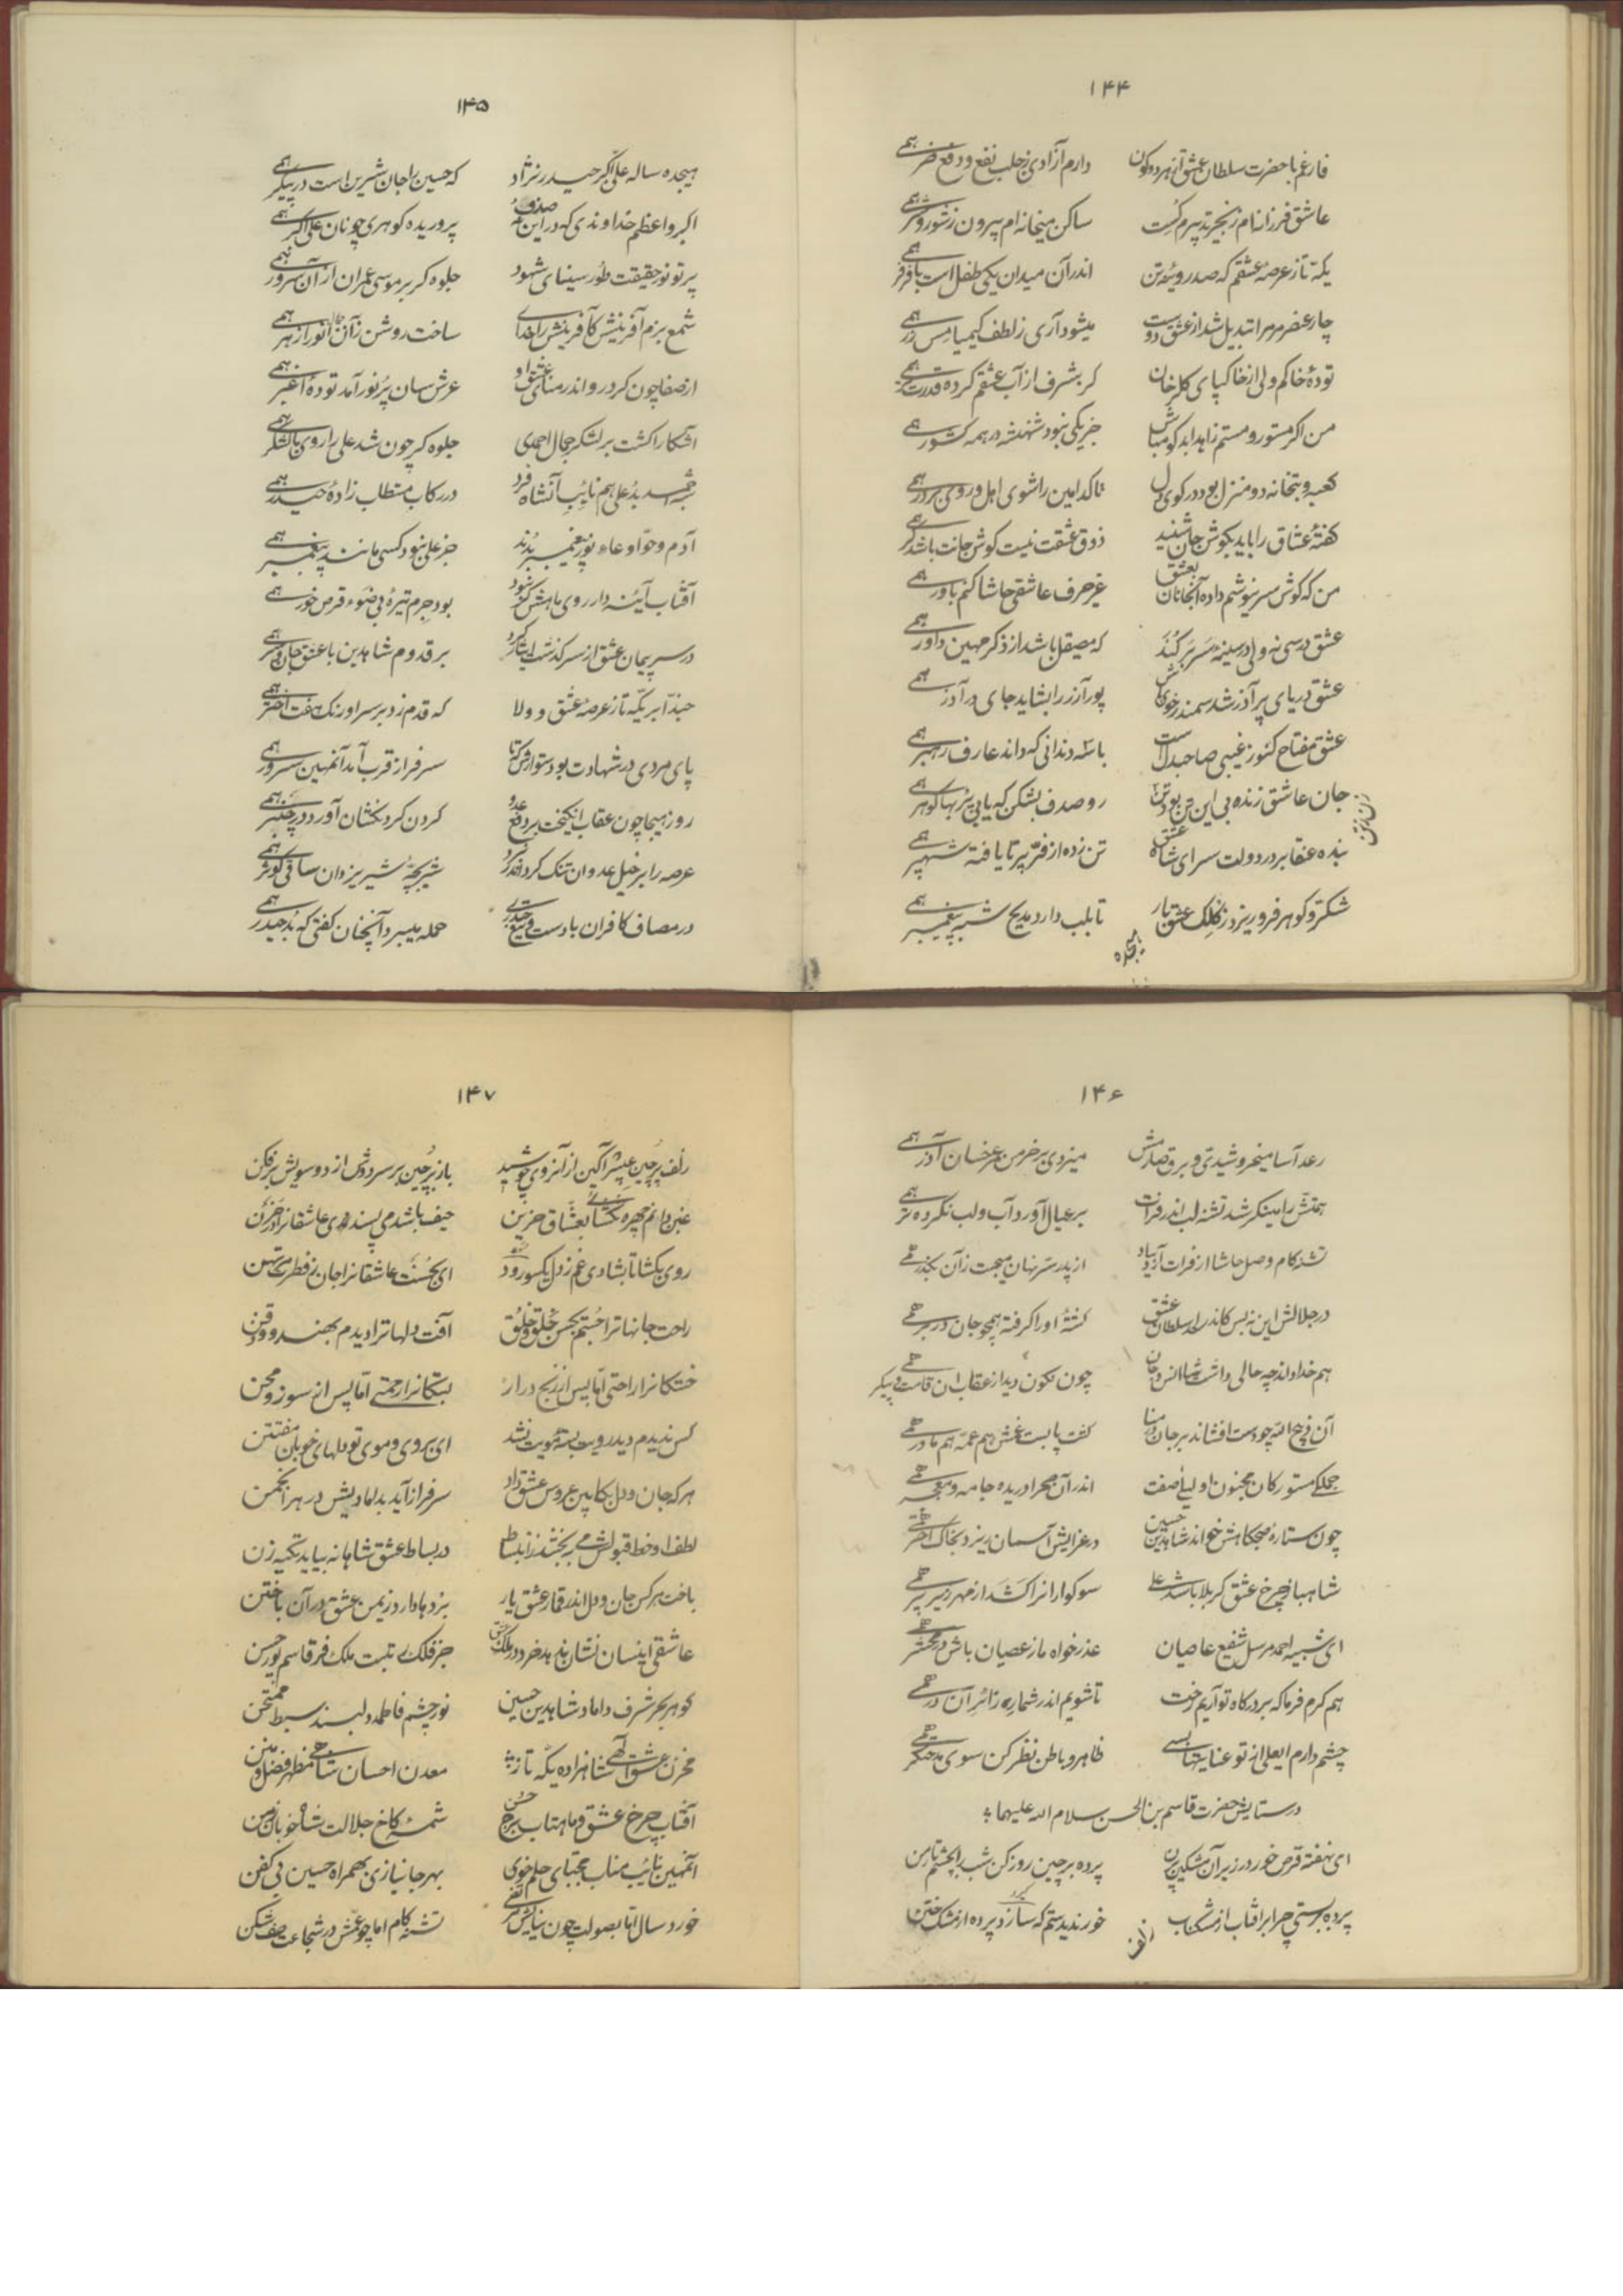 ۱۴۴
فارغم با حضرت سلطان عشق از هر دو کون دارم آزادی ز جلب نفع و دفع ضر همی
عاشق فرزانه‌ام زنجیر تدبیرم گسست ساکن میخانه‌ام بیرون ز شور و شر همی
یکه تاز عرصهٔ عشقم که صد رویینه تن اندر آن میدان یکی طفل است با فر همی
چار عنصر مر مرا تبدیل شد از عشق دوست میشود آری ز لطف کیمیا مس زر همی
تودهٔ خاکم ولی از خاکپای گلرخان کر بشرف از آب عشقم کرده قدرت همی
من اگر مستور و مستم زاهدا بد گو مباش جز یکی نبود شهنشه در همه کشور همی
کعبه و بتخانه دو منزل بود در کوی دل تا کدامین را شوی اهل و روی بر در همی
گفتهٔ عشاق را باید بگوش جان شنید ذوق عشقت نیست گوش جانت باشد کر همی
من که گوش سر نیوشم داده آنجانان بعشق غیر حرف عاشقی حاشا کنم باور همی
عشق درسی نه ولی در سینه سر بر کند که مصیقل باشد از ذکر مهین داور همی
عشق دریای پر آذر شد سمندر خوی باش پور آزر را بشاید جای در آذر همی
عشق مفتاح کنوز غیبی صاحبدلا ست با سه دندانی که داند عارف رهبر همی
جان عاشق زنده بی این تن بود رو صدف بشکن که یابی پر بها گوهر همی
بنده عنقا بر در دولت سرای شاه عشق تن زده از فر پر تا یافته شهپر همی
شکر و گوهر فرو ریزد ز کلک عشق بار تا بلب دارد مدیح شبه پیغمبر همی
هیجده
۱۴۵
هیجده ساله علی اکبر حیدر نژاد که حسین را جان شیرین است در پیکر همی
اکبر و اعظم خداوندی که در این نه صدف پروریده گوهری چونان علی اکبر همی
پرتو نور حقیقت طور سینای شهود جلوه گر بر موسی عمران از آن سرور همی
شمع بزم آفرینش کآفرینش را خدای ساخت روشن زآن جمال انور ازهر همی
از صفا چون کرد رو اندر منای عشق او عرش سان پر نور آمد تودهٔ اغبر همی
آشکارا گشت بر لشکر جمال احمدی جلوه گر چون شد علی را روی بالشکر همی
بد علی هم نایب آنشاه فرد در رکاب مستطاب زادهٔ حیدر همی
آدم و حوا دعاء نور پیغمبر بدند جز علی نبود کسی مانند پیغمبر همی
آفتاب آینه دار روی ماهش گر نبود بود جرم تیرهٔ بی ضوء قرص خور همی
در سر پیمان عشق از سر گذشت ایثار کرد بر قدوم شاهدین با عشق جان و سر همی
حبذا بر یکه تاز عرصهٔ عشق و ولا که قدم زد بر سر اورنگ هفت اختر همی
پای مردی در شهادت بود ستوارش که تا سرفراز قرب آمد آنمهین سرور همی
روز هیجا چون عقاب انگیخت بر دفع عدو گردن گردنکشان آورد در چنبر همی
عرصه را بر خیل عدوان تنگ کرد اندر نبرد شیر بچهٔ شیر یزدان ساقی کوثر همی
در مصاف کافران با دست و تیغ حیدری حمله میبرد آنچنان گفتی که بد حیدر همی
۱۴۶
رعد آسا میخروشیدی و برق صارمش میزدی بر خرمن عمر خسان آذر همی
همتش را مینگر شد تشنه لب اندر فرات بر عیال آورد آب و لب نکرده تر همی
تشنه کام وصل حاشا از فرات آرد بیاد از پدر سر نهان میجست زآن بگذر همی
در جلالش این نه بس کاندر لحد سلطان عشق کشتهٔ او را گرفته همچو جان در بر همی
هم خدا داند چه حالی داشت شاه انس و جان چون نگون دید از عقاب آن قامت و پیکر همی
آن فرج الله چو دست افشاند بر جان در منا کف پا بست غمش هم عمه هم مادر همی
جملگی مستورگان مجنون و لیلی صفت اندر آن صحرا دریده جامه و معجر همی
چون ستاره صبحگاهش خواند شاهدین حسین در عزایش آسمان ریزد بخاک اختر همی
شاهباز چرخ عشق کربلا باشد علی سوگواران را کشد از مهر زیر پر همی
ای شبیه احمد مرسل شفیع عاصیان عذر خواه ما ز عصیان باش در محشر همی
هم کرم فرما که بر درگاه تو آریم رخت تا شویم اندر شمار زائران در همی
چشم دارم ایعلی از تو عنایتها بسی ظاهر و باطن نظر کن سوی مدحتگر همی
در ستایش حضرت قاسم بن الحسن سلام الله علیهما
ای نهفته قرص خور در زیر آن مشکین پرن پرده بر چین روز کن شب را بچشم تار من
پرده بر بستی چرا بر آفتاب از مشکناب خور ندیدستم که سازد پرده از مشک ختن
زلف
۱۴۷
زلف پر چین عبیر آگین از آنروی چو شید باز بر چین بر سر دوش از دو سویش بر فکن
غبن دانم چهره نگشائی بعشاق حزین حیف باشد می پسندی عاشقانرا در حزن
روی بگشا تا بشادی غم ز دل یکسو رود ای بحسنت عاشقانرا جان ز فطرت مرتهن
راحت جانها ترا جستم بحسن خلق و خلق آفت دلها ترا دیدم بهند و در ختن
خستگانرا راحتی اما پس از رنج دراز بستگانرا رحمتی اما پس از سوز و محن
کس ندیدم دید رویت بستهٔ مویت نشد ای بروی و موی تو دلهای خوبان مفتتن
هر که جان و دل بکابین عروس عشق داد سرفراز آید بدامادیش در هر انجمن
لطف او خط قبولش می ببخشد ز انبساط در بساط عشق شاهانه بیاید تکیه زن
باخت هر کس جان و دل اندر قمار عشق یار بردها دارد ز یمن عشق در آن باختن
عاشقی اینسان نشان ندهد خرد در ملک عشق جز فلک رتبت ملک فر قاسم پور حسن
گوهر بحر شرف داماد شاهدین حسین نور چشم فاطمه دلبند سبط ممتحن
مخزن عشق آلهی شاهزاده یکه تاز معدن احسان شاهی مظهر فضل و منن
آفتاب چرخ عشق و ماهتاب برج حسن شمسهٔ کاخ جلالت شاه خوبان زمن
آنمهین نایب مناب مجتبای حلم خوی بهر جانبازی بهمراه حسین بی کفن
خورد سال اما بصولت چون نیایش مرتضی تشنه کام اما چو عمش در شجاعت صف شکن